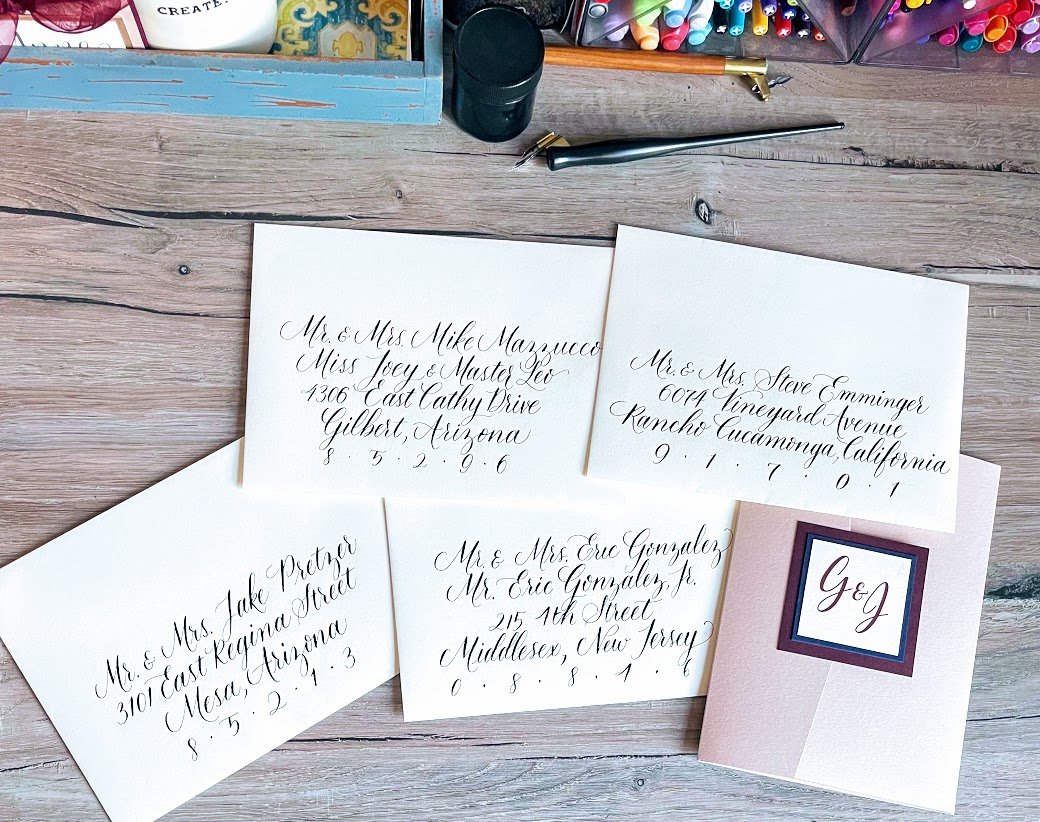 CREATE.
Mr. & Mrs. Mike Mazzucco
Miss Joey & Master Leo
4306 East Cathy Drive
Gilbert, Arizona
8 · 5 · 2 · 9 · 6
Mr. & Mrs. Steve Emminger
6074 Vineyard Avenue
Rancho Cucamonga, California
9 · 1 · 7 · 0 · 1
Mr. & Mrs. Jake Pretzer
3101 East Regina Street
Mesa, Arizona
8 · 5 · 2 · 1 · 3
Mr. & Mrs. Eric Gonzalez
Mr. Eric Gonzalez, Jr.
215 4th Street
Middlesex, New Jersey
0 · 8 · 8 · 4 · 6
G & J